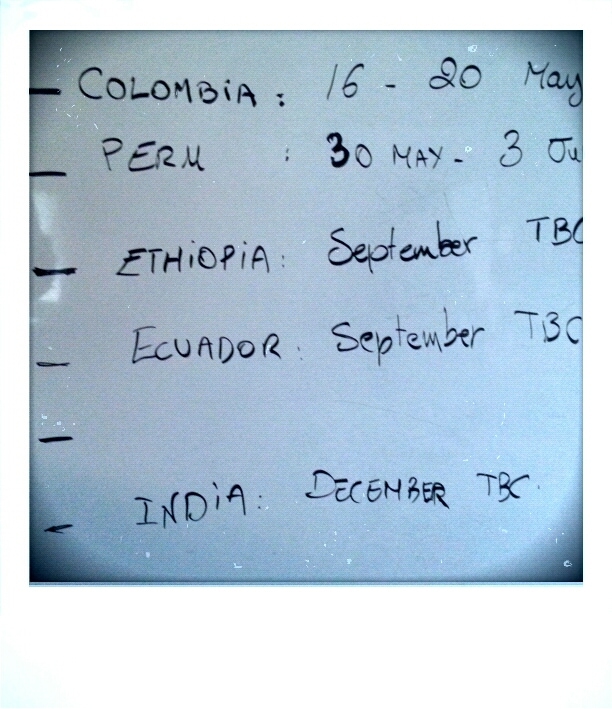 - COLOMBiA : 16 - 20 May
- PERU : 30 MAY - 3 Ju
- ETHiOPiA : September TBC
- ECUADOR : September TBC
-
- INDiA : DECEMBER TBC.